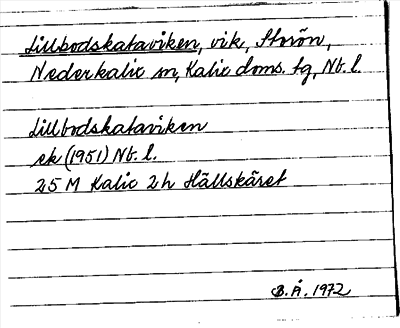 Lillbodskataviken, vik, Storön,
Nederkalix sn, Kalix doms. tg, Nb. l.
Lillbodskataviken
ek (1951) Nb. l.
25 M Kalix 2h Hällskäret
B. Å. 1972